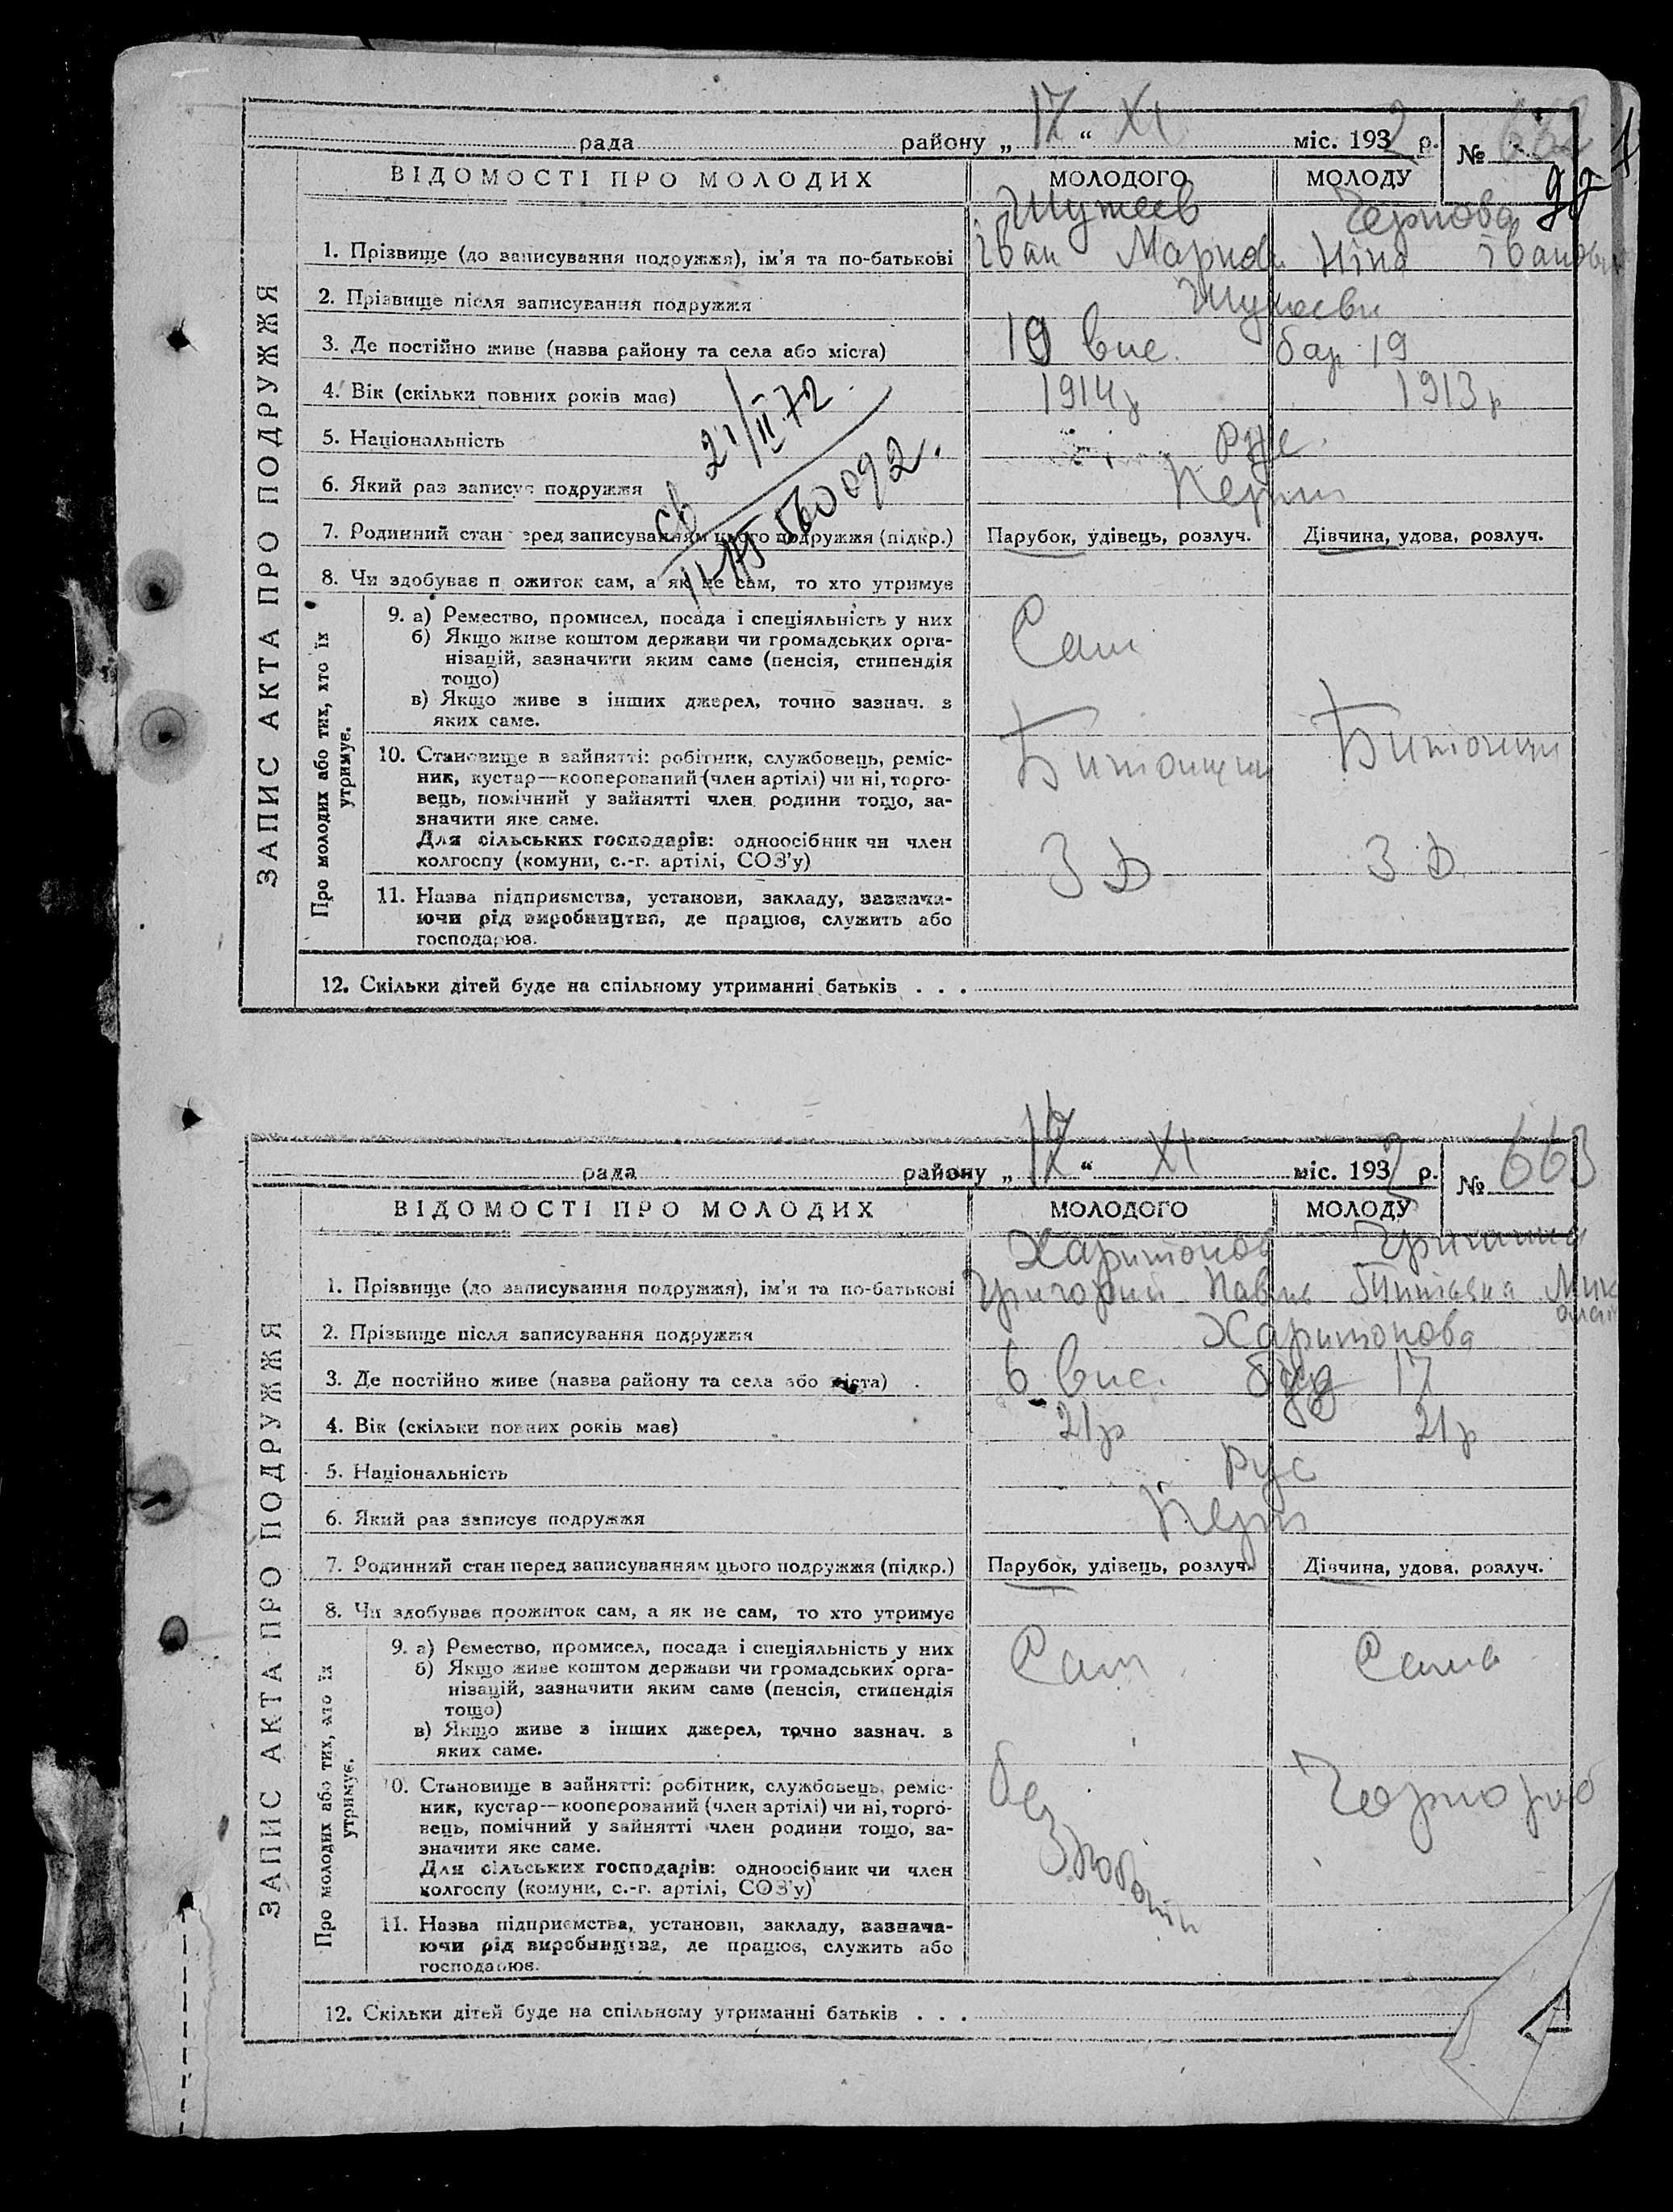 рада району „ 17 “ XI міс. 1932 р. № 662
ВІДОМОСТІ ПРО МОЛОДИХ МОЛОДОГО МОЛОДУ
Чернова
1. Прізвище (до записування подружжя), ім'я та по-батькові Іван Марков Ніна Іванов
2. Прізвище після записування подружжя
3. Де постійно живе (назва району та села або міста) 19 вис. бар 19
4. Вік (скільки повних років має) 1914р 1913р
5. Національність Рус.
6. Який раз записує подружжя Перши
7. Родинний стан перед записуванням цього подружжя (підкр.) Парубок, удівець, розлуч. Дівчина, удова, розлуч.
8. Чи здобуває прожиток сам, а як не сам, то хто утримує
св 21/II 72
560092.
ЗАПИС АКТА ПРО ПОДРУЖЖЯ
Про молодих або тих, хто їх утримує.
9. а) Ремество, промисел, посада і спеціяльність у них
б) Якщо живе коштом держави чи громадських орга-
нізацій, зазначити яким саме (пенсія, стипендія
тощо)
Сам
в) Якщо живе з інших джерел, точно зазнач. з
яких саме.
10. Становище в зайнятті: робітник, службовець, реміс-
ник, кустар—кооперований (член артілі) чи ні, торго-
вець, помічний у зайнятті член родини тощо, за-
значити яке саме.
Битонщи Битонщи
Для сільських господарів: одноосібник чи член
колгоспу (комуни, с.-г. артілі, СОЗ'у)
З Д З Д
11. Назва підприємства, установи, закладу, зазнача-
ючи рід виробництва, де працює, служить або
господарює.
12. Скільки дітей буде на спільному утриманні батьків . . .
рада району „ 17 “ XI міс. 1932 р. № 663
ВІДОМОСТІ ПРО МОЛОДИХ МОЛОДОГО МОЛОДУ
Харитонов Гришина
1. Прізвище (до записування подружжя), ім'я та по-батькові Григорий Павл Титяна Мик
олаї
2. Прізвище після записування подружжя Харитонова
3. Де постійно живе (назва району та села або міста) 6 вис. буд 17
4. Вік (скільки повних років має) 21р 21р
5. Національність Рус
6. Який раз записує подружжя Перш
7. Родинний стан перед записуванням цього подружжя (підкр.) Парубок, удівець, розлуч. Дівчина, удова, розлуч.
8. Чи здобуває прожиток сам, а як не сам, то хто утримує
ЗАПИС АКТА ПРО ПОДРУЖЖЯ
Про молодих або тих, хто їх утримує.
9. а) Ремество, промисел, посада і спеціяльність у них
б) Якщо живе коштом держави чи громадських орга-
нізацій, зазначити яким саме (пенсія, стипендія
тощо)
Сам Сама
в) Якщо живе з інших джерел, точно зазнач. з
яких саме.
10. Становище в зайнятті: робітник, службовець, реміс-
ник, кустар—кооперований (член артілі) чи ні, торго-
вець, помічний у зайнятті член родини тощо, за-
значити яке саме.
без Чорнороб
Для сільських господарів: одноосібник чи член
колгоспу (комуни, с.-г. артілі, СОЗ'у)
11. Назва підприємства, установи, закладу, зазнача-
ючи рід виробництва, де працює, служить або
господарює.
12. Скільки дітей буде на спільному утриманні батьків . . .